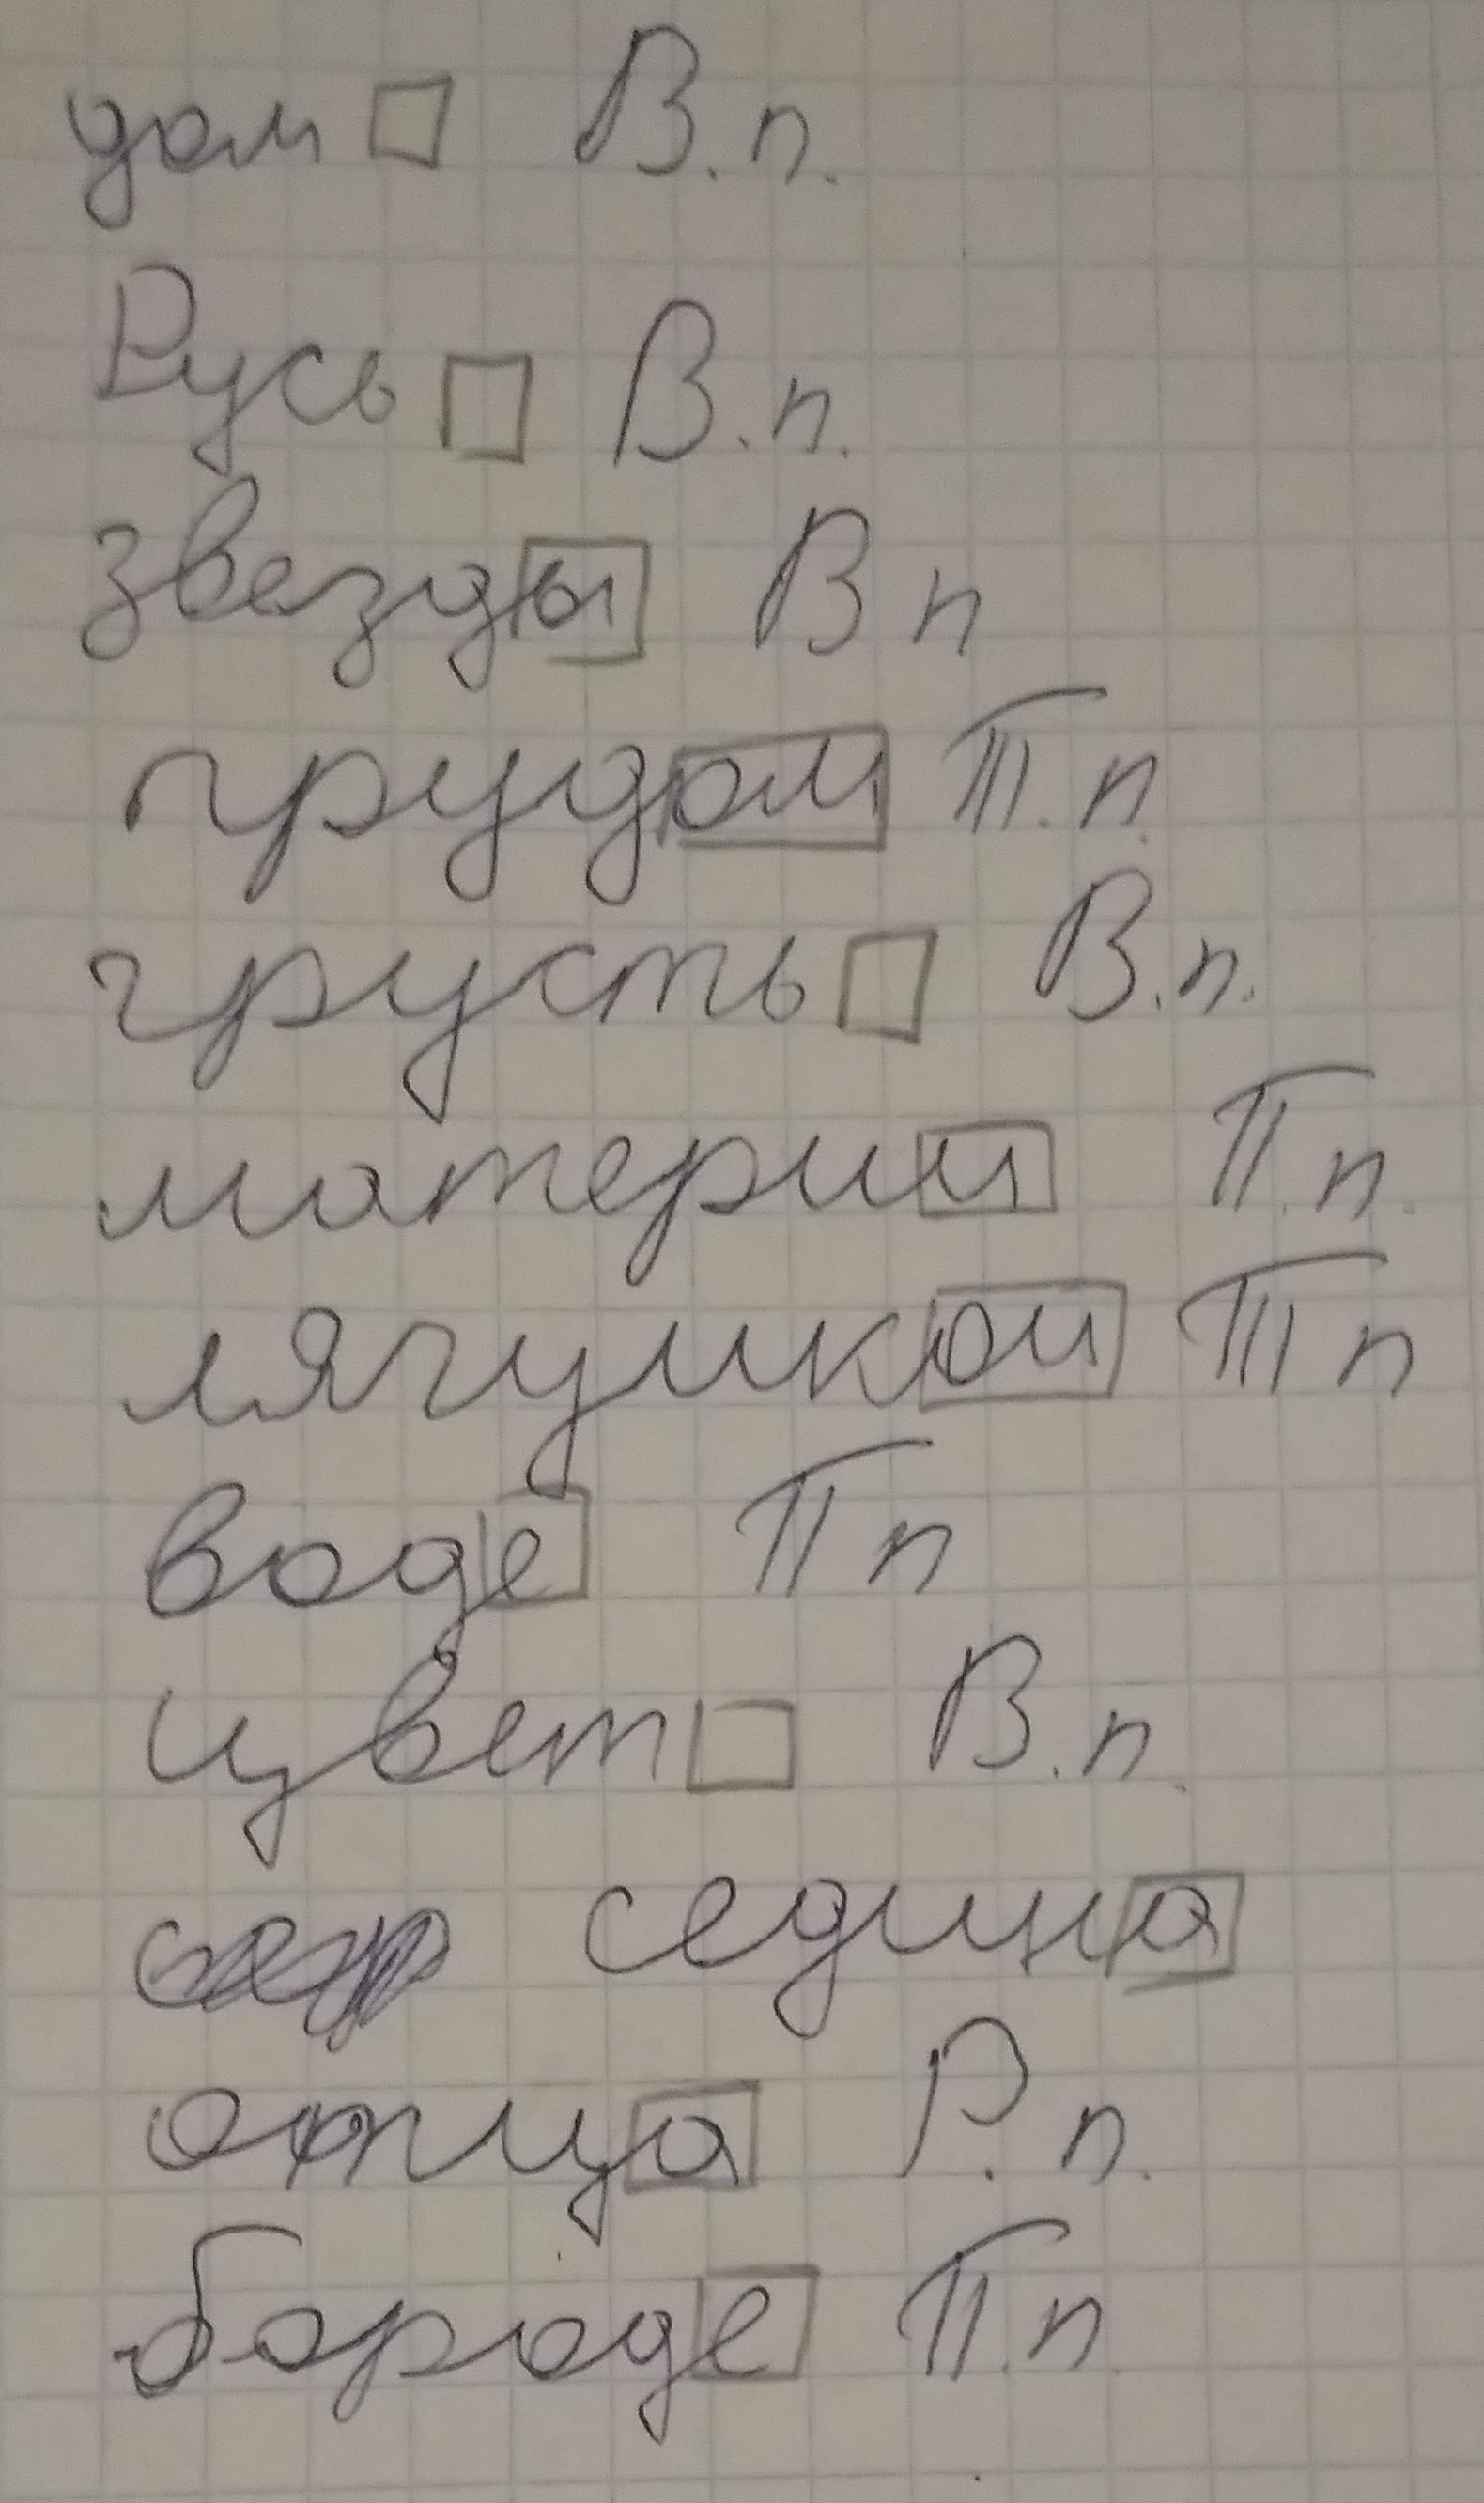 дом В.п.
Русь В.п.
звезды В п
прудом Т.п.
грусть В.п.
материи П.п.
лягушкой Т п
воде П п
цвет В.п.
седина
отца Р.п.
бороде П.п.